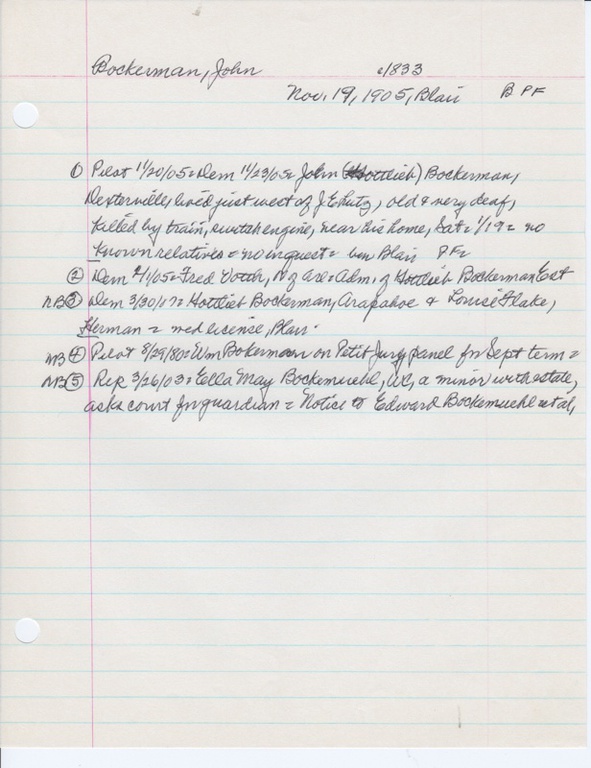 Bockerman, John c1833
Nov. 19, 1905, Blair B PF
① Pilot 11/20/05 = Dem 11/23/05 = John (Gottlieb) Bockerman,
Dexterville, lived just west of J E Lutz, old & very deaf,
killed by train, switch engine, near his home, Sat = 11/19 = no
known relatives = no inquest = bur Blair PF =
② Dem /1/05 = Fred Voth, N of Arl = Adm. of Gottlieb Bockerman Est
NB③ Dem 3/30/17 = Gottlieb Bockerman, Arapahoe & Louise Flake,
Herman = wed license, Blair.
NB④ Pilot 8/29/80 = Wm Bokerman on Petit Jury panel for Sept term =
NB⑤ Rep 3/26/03 = Ella May Bockemuehl, WC, a minor with estate,
asks court for guardian = Notice to Edward Bockemuehl et al,